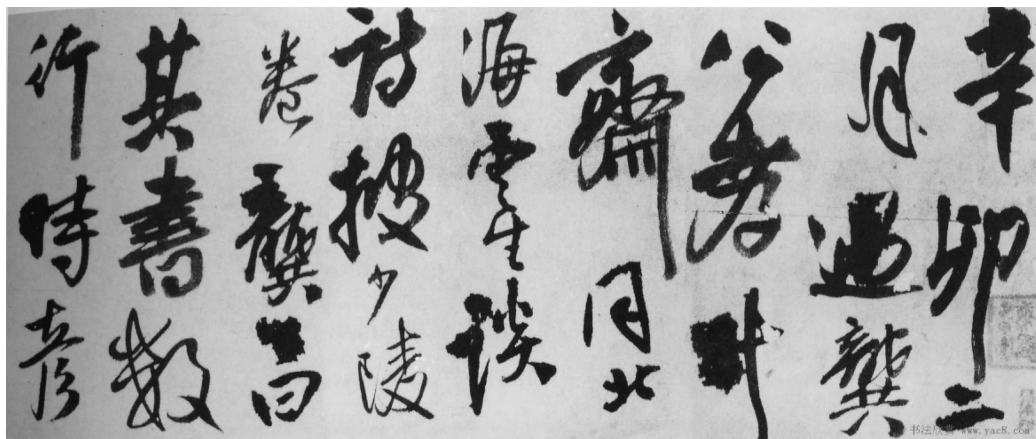 辛卯二
月過龔
公孝升
齋同北
海雲生談
詩少陵
卷龔曰
其書數
行時彥
书法欣赏 www.yac8.com